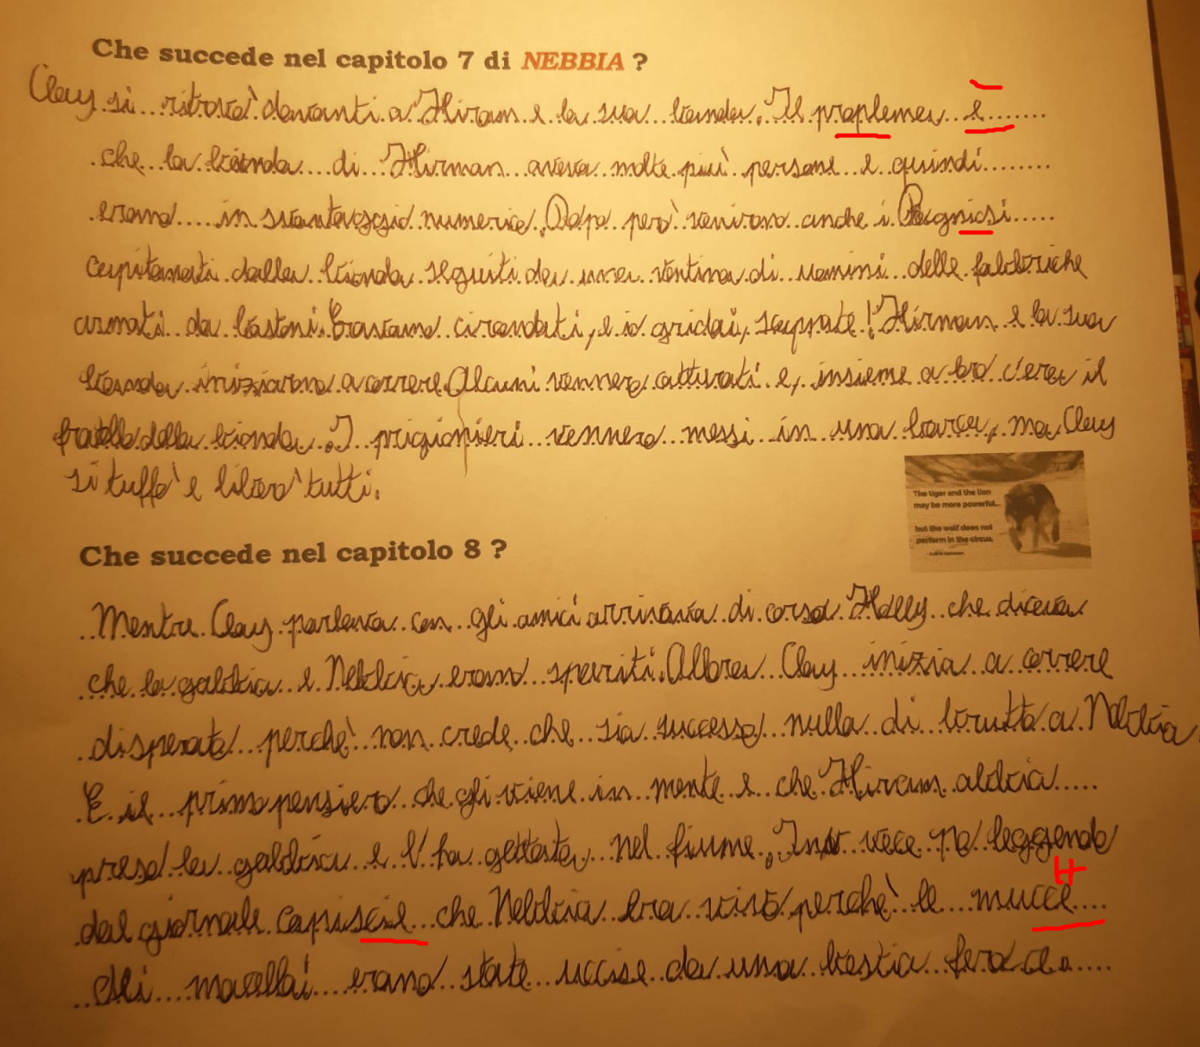 Che succede nel capitolo 7 di NEBBIA ?
Clay si ritrovò davanti a Hiram e la sua banda. Il propleme e
che la banda di Hirman aveva molte più persone e quindi
erano in svantaggio numerico. Dopo però venirono anche i Pagnicsi
capitanati dalla bionda seguiti da una ventina di uomini delle fabbriche
armati da bastoni. Eravamo circondati, e io gridai, scappate! Hirman e la sua
banda iniziarono a correre. Alcuni vennero catturati e, insieme a loro c'era il
fratello della bionda. I prigionieri vennero messi in una barca, ma Clay
si tuffò e liberò tutti.
The tiger and the lion
may be more powerful...
but the wolf does not
perform in the circus.
Che succede nel capitolo 8 ?
Mentre Clay parlava con gli amici arrivava di corsa Holly che diceva
che la gabbia e Nebbia erano spariti. Allora Clay inizia a correre
disperato perchè non crede che sia successo nulla di brutto a Nebbia
E il primo pensiero che gli viene in mente e che Hiram abbia
preso la gabbia e l'ha gettata nel fiume. vece leggendo
dal giornale capiscie che Nebbia era vivo perchè le mucce
H
dei macellai erano state uccise da una bestia feroce.